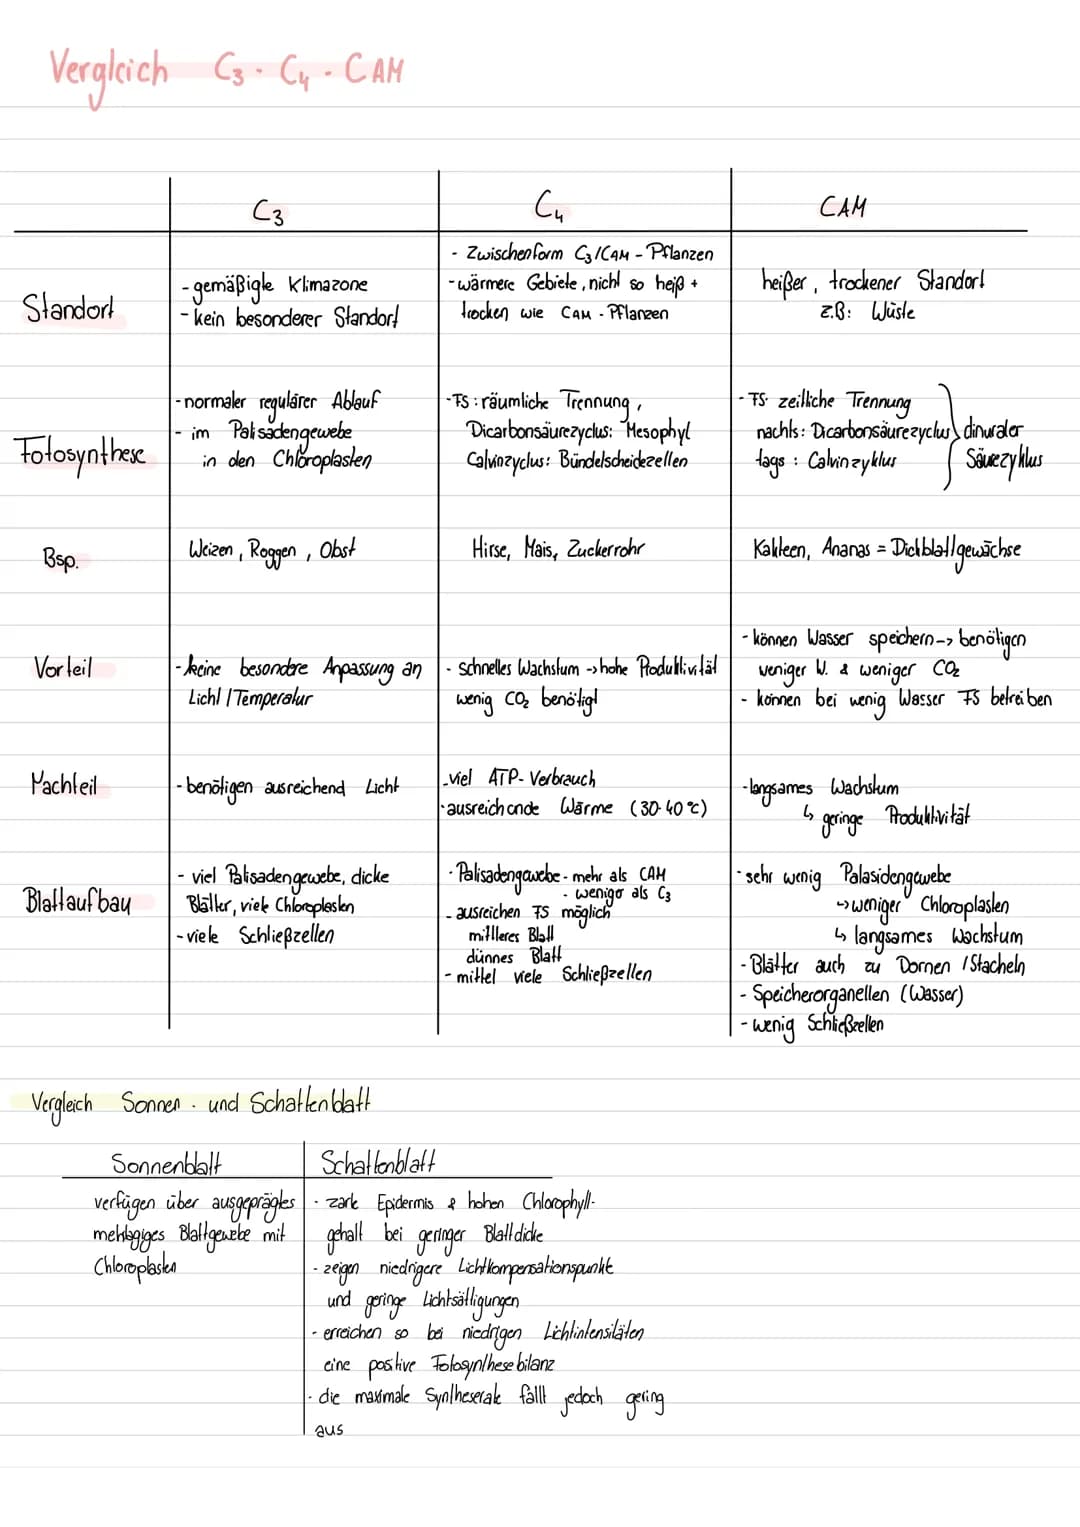 Vergleich C3 - C4 - CAM
C3 C4 CAM
Standort
- gemäßigte Klimazone
- kein besonderer Standort
- Zwischenform C3/CAM - Pflanzen
- wärmere Gebiete, nicht so heiß +
trocken wie CAM - Pflanzen
heißer, trockener Standort
z.B: Wüste
Fotosynthese
- normaler regulärer Ablauf
- im Palisadengewebe
in den Chloroplasten
- FS: räumliche Trennung,
Dicarbonsäurezyclus: Mesophyl
Calvinzyclus: Bündelscheidezellen
- FS: zeitliche Trennung
nachts: Dicarbonsäurezyclus
tags: Calvinzyklus
dinuraler
Säurezyklus
Bsp.
Weizen, Roggen, Obst
Hirse, Mais, Zuckerrohr
Kakteen, Ananas = Dickblattgewächse
Vorteil
- keine besondere Anpassung an
Licht / Temperatur
- schnelles Wachstum -> hohe Produktivität
wenig CO2 benötigt
- können Wasser speichern -> benötigen
weniger W. & weniger CO2
- können bei wenig Wasser FS betreiben
Nachteil
- benötigen ausreichend Licht
- viel ATP- Verbrauch
- ausreichende Wärme (30-40°C)
- langsames Wachstum
↳ geringe Produktivität
Blattaufbau
- viel Palisadengewebe, dicke
Blätter, viele Chloroplasten
- viele Schließzellen
- Palisadengewebe - mehr als CAM
- weniger als C3
- ausreichen FS möglich
mittleres Blatt
dünnes Blatt
- mittel viele Schließzellen
- sehr wenig Palasidengewebe
-> weniger Chloroplasten
↳ langsames Wachstum
- Blätter auch zu Dornen / Stacheln
- Speicherorganellen (Wasser)
- wenig Schließzellen
Vergleich Sonnen - und Schattenblatt
Sonnenblatt Schattenblatt
verfügen über ausgeprägtes
mehrlagiges Blattgewebe mit
Chloroplasten
- zarte Epidermis & hohen Chlorophyll-
gehalt bei geringer Blattdicke
- zeigen niedrigere Lichtkompensationspunkte
und geringe Lichtsättigungen
- erreichen so bei niedrigen Lichtintensitäten
eine positive Fotosynthesebilanz
- die maximale Syntheserate fällt jedoch gering
aus